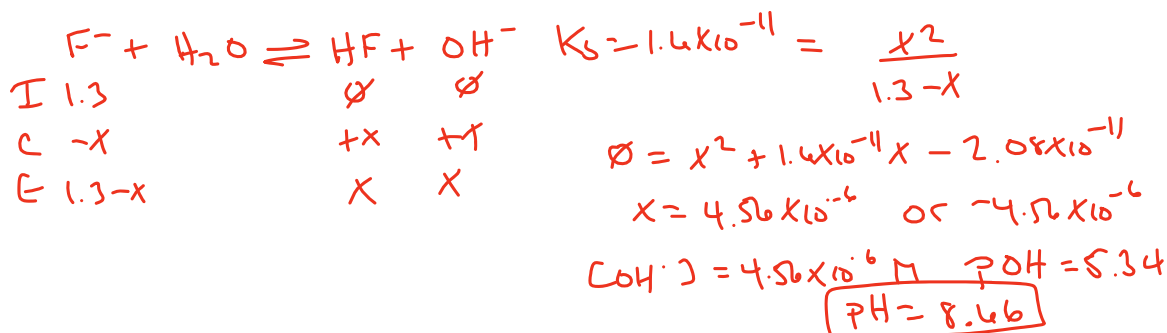 F⁻ + H₂O ⇌ HF + OH⁻ Kb = 1.6x10⁻¹¹ = x²/(1.3-x)
I 1.3 ∅ ∅
C -x +x +x
E 1.3-x x x
∅ = x² + 1.6x10⁻¹¹x - 2.08x10⁻¹¹
x = 4.56x10⁻⁶ or -4.56x10⁻⁶
[OH⁻] = 4.56x10⁻⁶ M pOH = 5.34
pH = 8.66